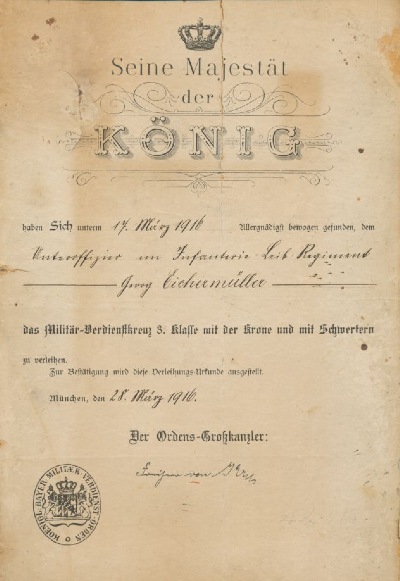 Seine Majestät
der
KÖNIG
haben Sich unterm 17. März 1916 Allergnädigst bewogen gefunden, dem
Unteroffizier im Infanterie Leib Regiment
Georg Eichermüller
das Militär-Verdienstkreuz 3. Klasse mit der Krone und mit Schwertern
zu verleihen.
Zur Bestätigung wird diese Verleihungs-Urkunde ausgestellt.
München, den 28. März 1916.
Der Ordens-Großkanzler:
von
KOENIGL. BAYER. MILITÆR-VERDIENST-ORDEN